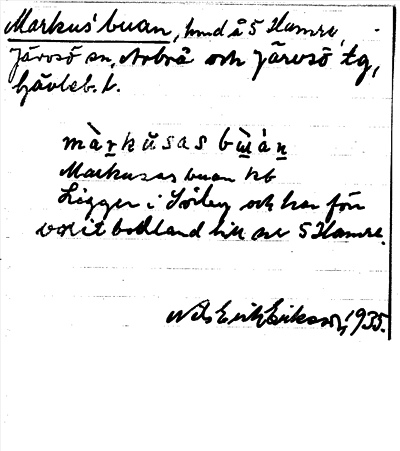 Markus'buan, hmd å 5 Hamre,
Järvsö sn, Arbrå och Järvsö tg,
Gävleb. l.
màrkŭsas bùàn
Markusas buan kb
Ligger i Sörby och har förr
varit bodland till nr 5 Hamre.
Nils Erik Eriksson, 1935.